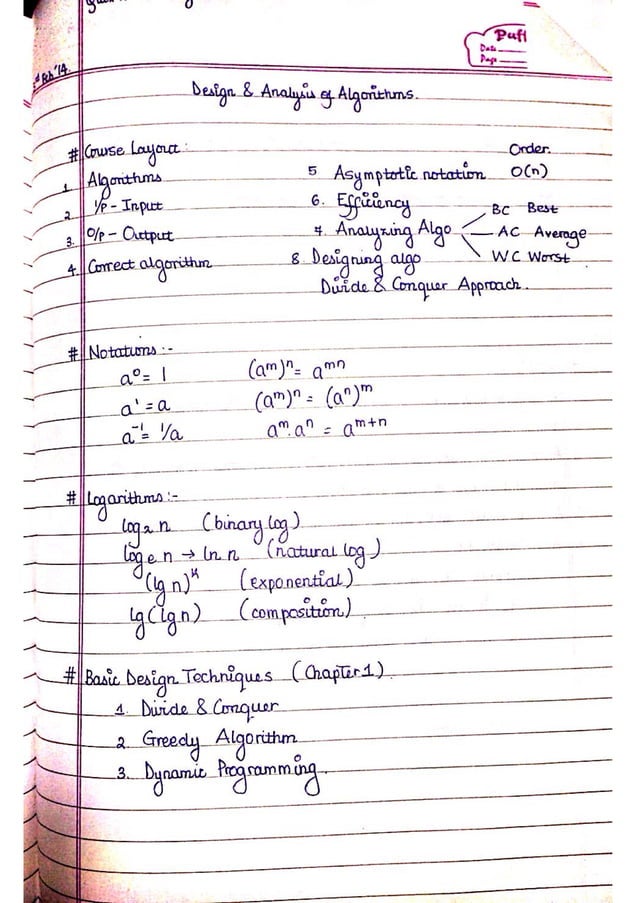 Puff
Date
Page
Feb '14
Design & Analysis of Algorithms.
# Course Layout:
1. Algorithms
2. I/P - Input
3. O/P - Output
4. Correct algorithm
Order.
5 Asymptotic notation O(n)
6. Efficiency
7. Analyzing Algo
BC Best
AC Average
WC Worst
8. Designing algo
Divide & Conquer Approach.
# Notations :-
a⁰ = 1 (aᵐ)ⁿ = aᵐⁿ
a¹ = a (aᵐ)ⁿ = (aⁿ)ᵐ
a⁻¹ = 1/a aᵐ.aⁿ = aᵐ⁺ⁿ
# Logarithms :-
log₂ n (binary log)
logₑ n → ln n (natural log)
(lg n)ᵏ (exponential)
lg(lg n) (composition)
# Basic Design Techniques (Chapter 1)
1. Divide & Conquer
2 Greedy Algorithm
3. Dynamic Programming.